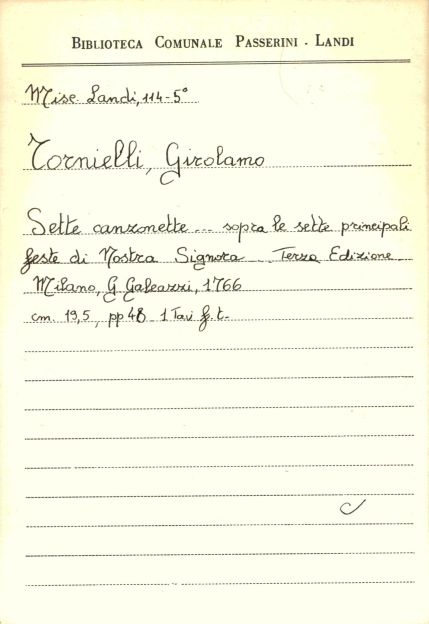 BIBLIOTECA COMUNALE PASSERINI - LANDI
Misc. Landi, 114-5°
Tornielli, Girolamo
Sette canzonette ... sopra le sette principali
feste di Nostra Signora ... Terza Edizione
Milano, G. Galeazzi, 1766
cm. 19,5, pp 48 1 Tav f.t.